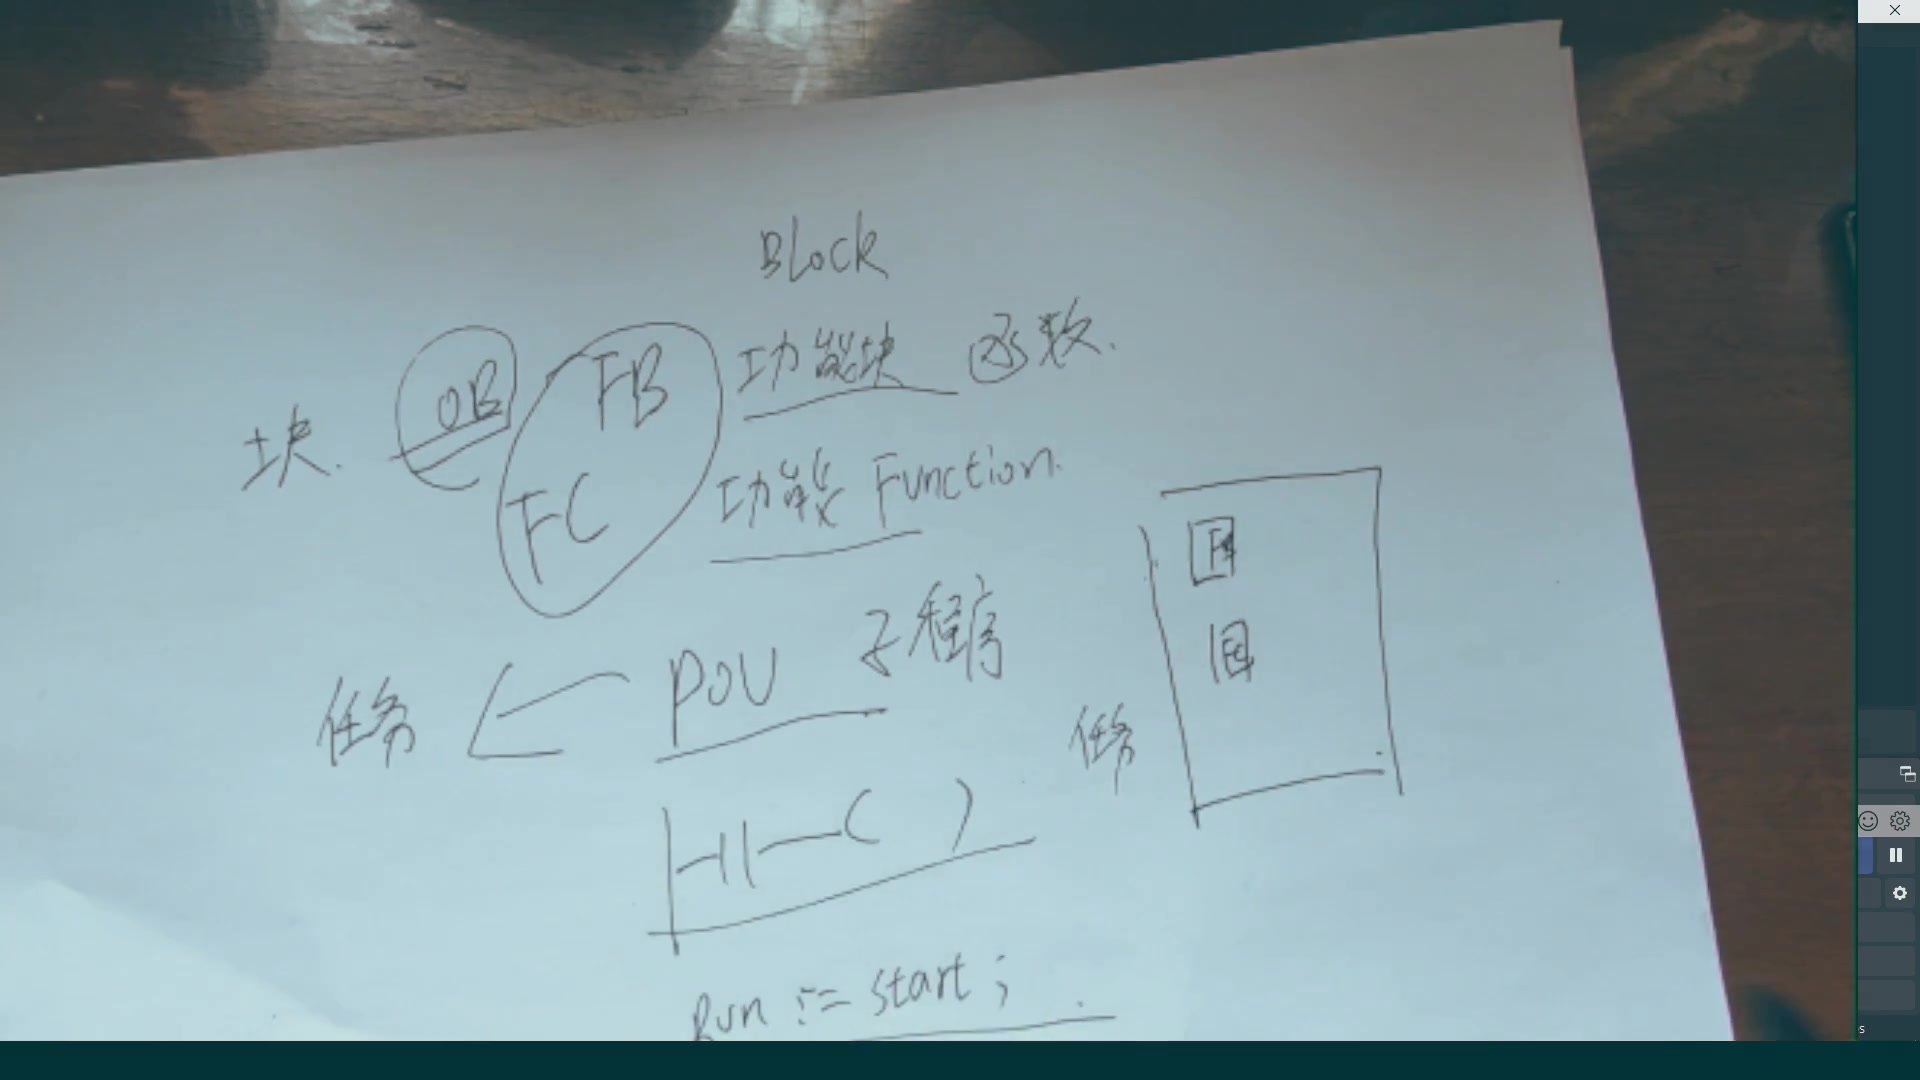 Block
块. OB FB 功能块 函数.
FC 功能 Function.
任务 POU 子程序
任务
Run := start;
s